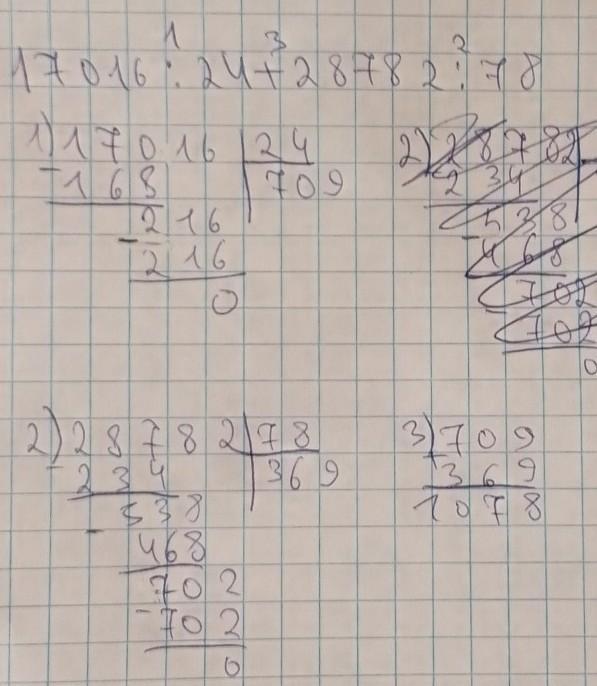 1 3 2
17016:24+28782:78
1) 17016 | 24
-168 | 709
-216
216
0
2) 28782
234
538
-468
702
702
0
2) 28782 | 78
-234 | 369
-538
468
702
-702
0
3) 709
+369
1078